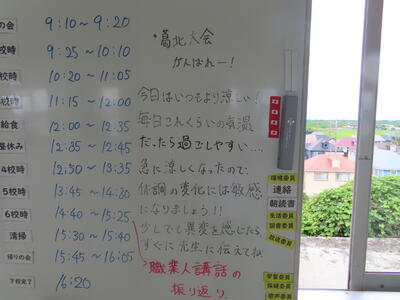 の会 9:10～9:20
校時 9:25～10:10
校時 10:20～11:05
校時 11:15～12:00
給食 12:00～12:35
昼休み 12:35～12:45
4校時 12:50～13:35
5校時 13:45～14:30
6校時 14:40～15:25
清掃 15:30～15:40
帰りの会 15:45～16:05
下校完了 16:20
・葛北大会
がんばれー!
今日はいつもより涼しい!
毎日これくらいの気温
だったら過ごしやすい…
急に涼しくなったので、
体調の変化には敏感
になりましょう!!
少しでも異変を感じたら
すぐに先生に伝えてね
職業人講話の
振り返り
環境委員
連絡
朝読書
生活委員
図書委員
放送委員
学習委員
保健委員
歌声委員